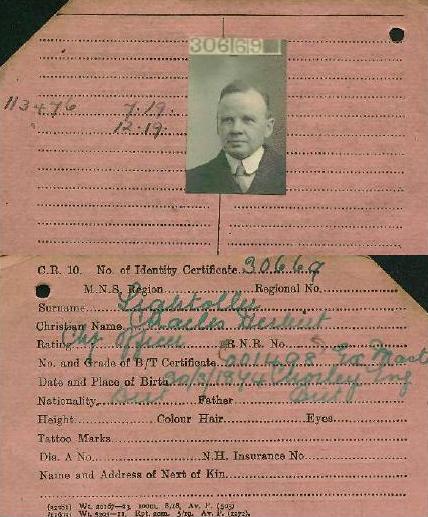 306169
113476 7.19.
12.19.
C.R. 10. No. of Identity Certificate 306169
M.N.S. Region Regional No.
Surname Lightoller
Christian Name Charles Herbert
Rating Officer B.N.R. No.
No. and Grade of B/T Certificate 001498
Date and Place of Birth 30/3/1874 Chorley Eng
Nationality Brit Father Brit
Height Colour Hair Eyes
Tattoo Marks
Dis. A No. N.H. Insurance No
Name and Address of Next of Kin
Wt. 20167—23. 8/18, Av. P.
Rpt. 3/19. Av. P.